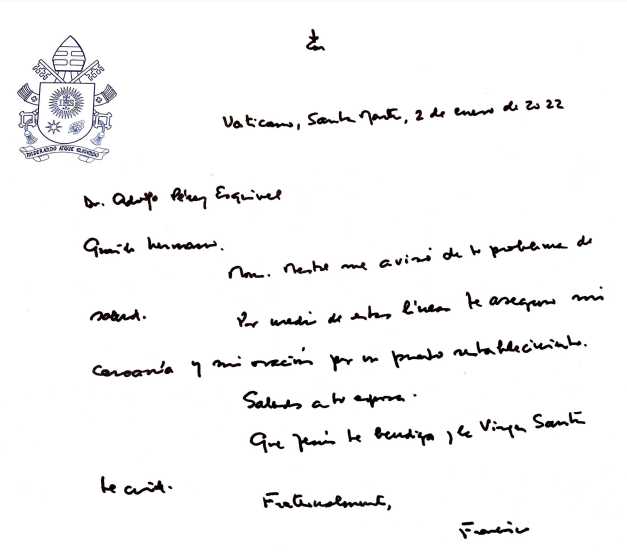 IHS
MISERANDO ATQUE ELIGENDO
Vaticano, Santa Marta, 2 de enero de 2022
Dr. Adolfo Pérez Esquivel
Querido hermano.
Mons. me avisó de tu problema de
salud. Por medio de estas líneas te aseguro mi
cercanía y mi oración por un pronto restablecimiento.
Saludos a tu esposa.
Que Jesús te bendiga y la Virgen Santa
te cuide.
Fraternalmente,
Francisco